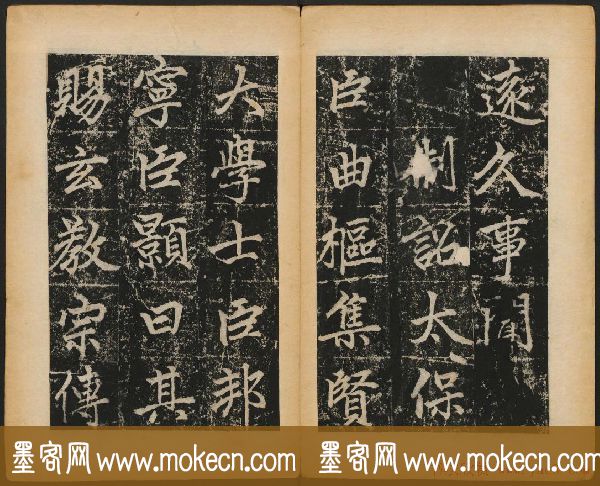 遠久事聞
制詔太保
臣曲樞集賢
大學士臣邦
寧臣顥曰其
賜玄教宗傳
墨客网 www.mokecn.com 墨客网 www.mokecn.com